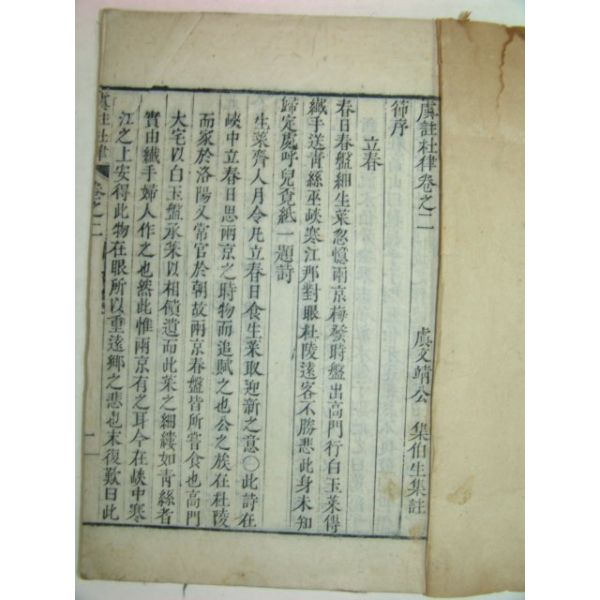 虞註杜律卷之二
虞文靖公 集伯生集註
節序
立春
春日春盤細生菜忽憶兩京梅發時盤出高門行白玉菜得
纖手送青絲巫峽寒江那對眼杜陵遠客不勝悲此身未知
歸定處呼兒覓紙一題詩
生菜齊人月令凡立春日食生菜取迎新之意〇此詩在
峽中立春日思兩京之時物而追賦之也公之族在杜陵
而家於洛陽又常官於朝故兩京春盤皆所嘗食也高門
大宅以白玉盤承菜以相饋遺而此菜之細縷如青絲者
實由纖手婦人作之也然此惟兩京有之耳今在峽中寒
江之上安得此物在眼所以重遠鄉之悲也末復歎曰此
虞註杜律 卷之二 一